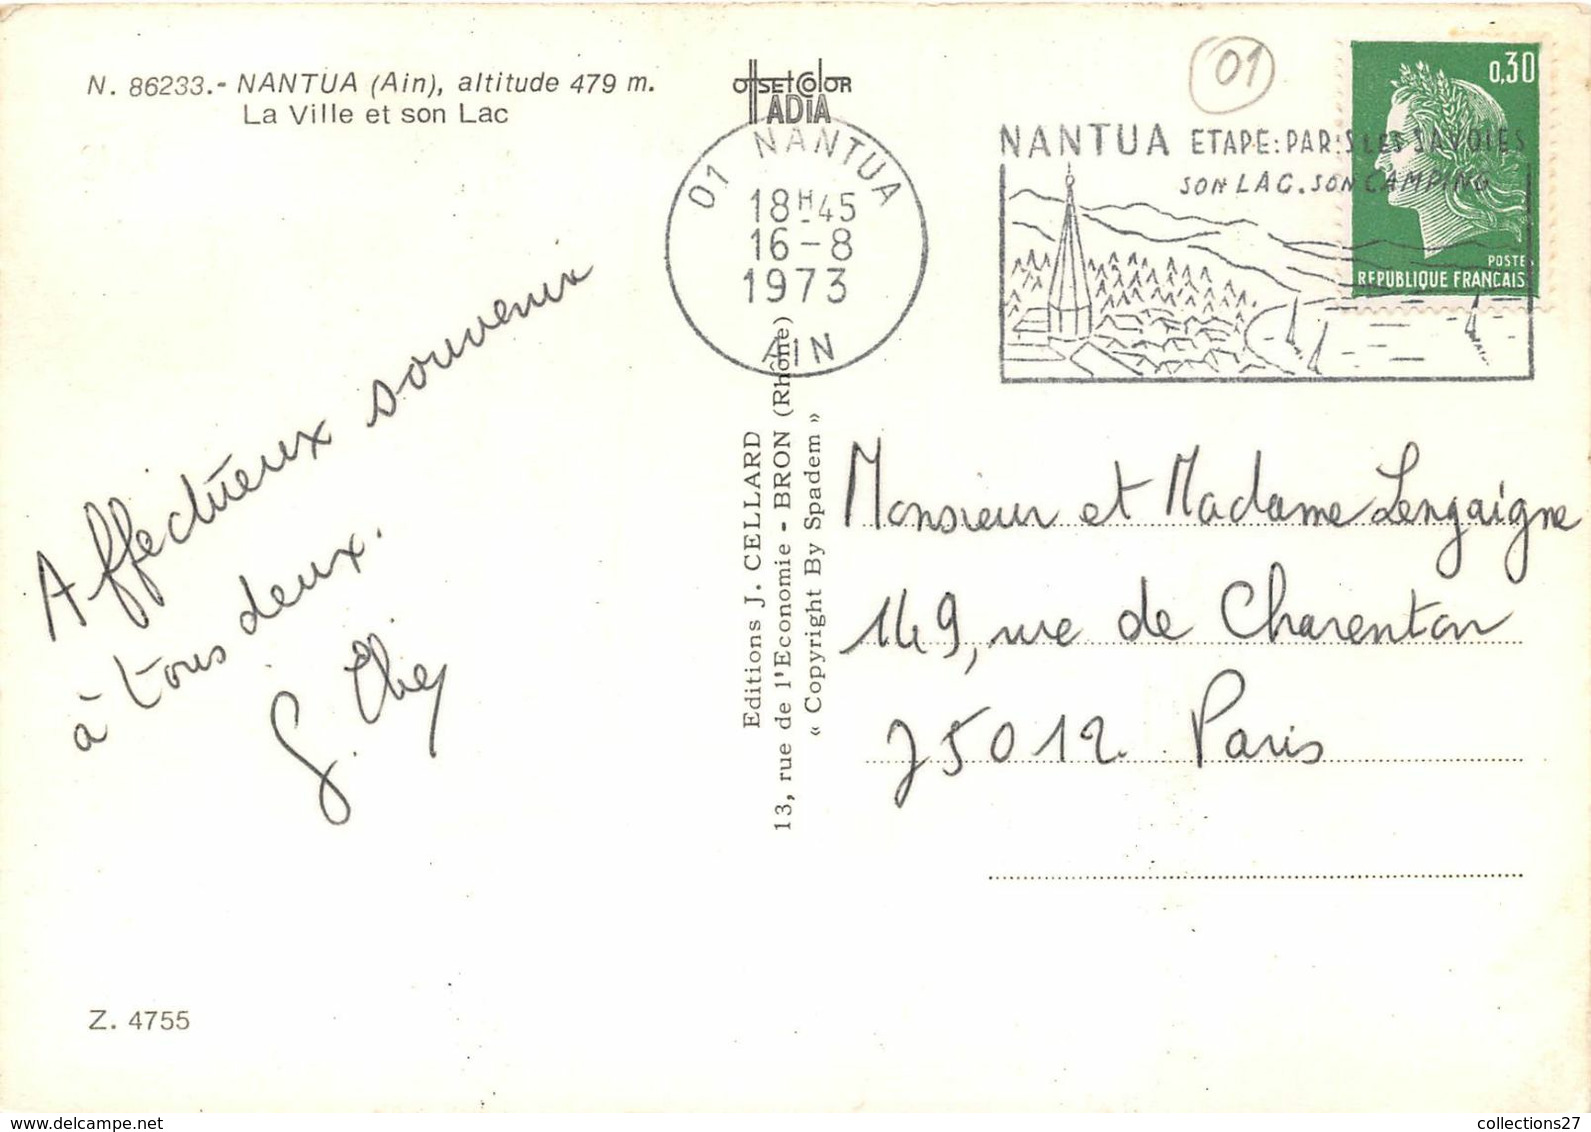 N. 86233.- NANTUA (Ain), altitude 479 m.
La Ville et son Lac
offsetcolor
IADIA
01 NANTUA
18H45
16-8
1973
AIN
01
NANTUA ETAPE: PARIS LES SAVOIES
SON LAC. SON CAMPING
0,30
POSTE
REPUBLIQUE FRANCAISE
Affectueux souvenir
à tous deux.
Editions J. CELLARD
13, rue de l'Economie - BRON (Rhône)
« Copyright By Spadem »
Monsieur et Madame Lengaigne
149, rue de Charenton
75012 Paris
Z. 4755
collections27